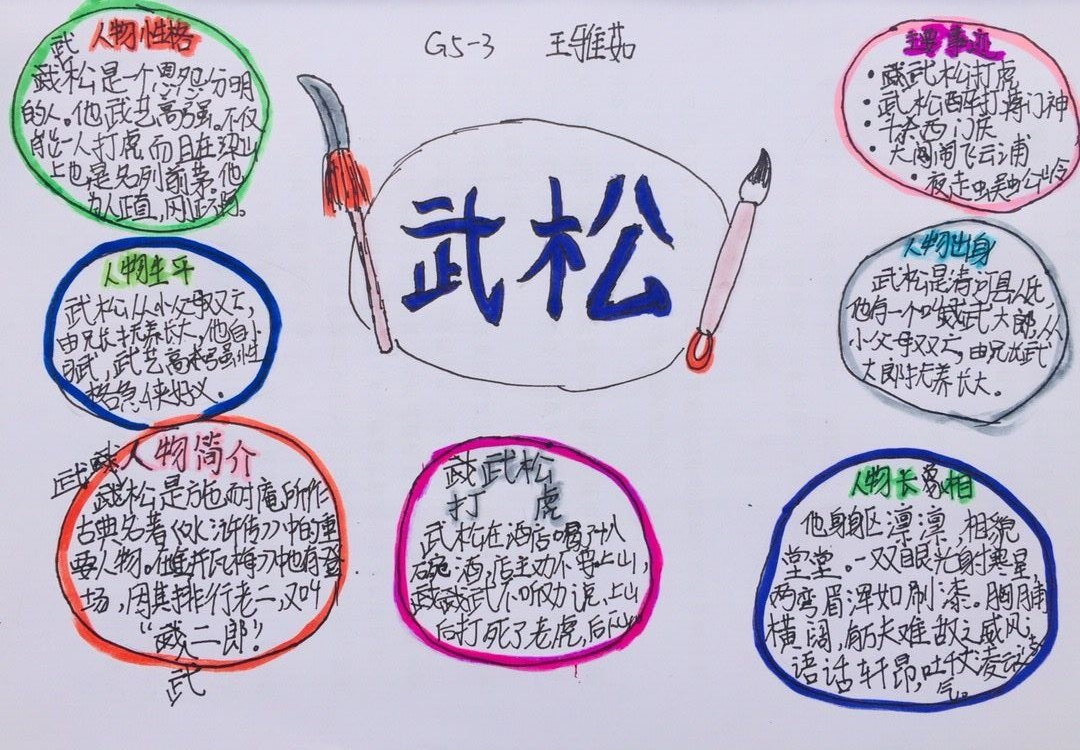 G5-3 王雅茹
武松
武
人物性格
武松是一个恩怨分明
的人。他武艺高强。不仅
能一人打虎而且在梁山
上也是名列前茅。他
为人正直,刚正不阿。
人物生平
武松从小父母双亡,
由兄长抚养长大,他自小
习武,武艺高强性
格急侠好义。
武
人物简介
武松是施耐庵所作
古典名著《水浒传》中的重
要人物。在《金瓶梅》中也有登
场,因其排行老二,又叫
“二郎”!
武
武松
打 虎
武松在酒店喝了十八
碗酒,店主劝不要上山,
武不听劝说,上山
后打死了老虎,后
主要事迹
• 武松打虎
• 武松醉打蒋门神
• 斗杀西门庆
• 大闹飞云浦
• 夜走蜈蚣岭
人物出身
武松是清河县人氏,
他有一个叫武大郎,从
小父母双亡,由兄长武
大郎抚养长大。
人物长相
他身躯凛凛,相貌
堂堂。一双眼光射寒星,
两弯眉浑如刷漆。胸脯
横阔,有万夫难敌之威风;
语话轩昂,吐千丈凌云之
气。